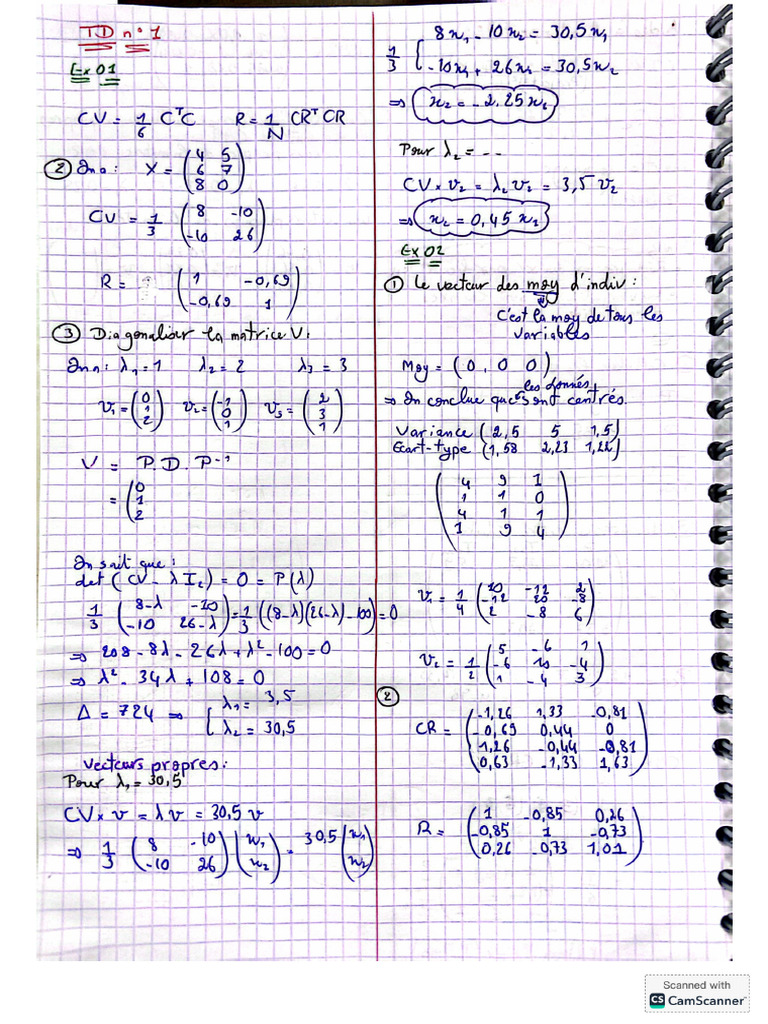 TD n° 1
Ex 01
CV = 1/6 CᵀC    R = 1/N CRᵀ CR
② On a : X = (4 5
6 7
8 0)
CV = 1/3 (8 -10
-10 26)
R = (1 -0,69
-0,69 1)
③ Diagonaliser la matrice V:
On a : λ₁ = 1   λ₂ = 2   λ₃ = 3
V₁ = (0   V₂ = (-1   V₃ = (2
1   0   3
2)   1)   1)
V = P. D. P⁻¹
= (0
1
2
On sait que :
det (CV - λ I₂) = 0 = P(λ)
1/3 (8-λ -10
-10 26-λ) = 1/3 ((8-λ)(26-λ) - 100) = 0
⇒ 208 - 8λ - 26λ + λ² - 100 = 0
⇒ λ² - 34λ + 108 = 0
Δ = 724 ⇒ { λ₁ = 3,5
λ₂ = 30,5
Vecteurs propres :
Pour λ₁ = 30,5
CV × v = λv = 30,5 v
⇒ 1/3 (8 -10
-10 26) (x₁
x₂) = 30,5 (x₁
x₂)
1/3 { 8x₁ - 10x₂ = 30,5x₁
-10x₁ + 26x₂ = 30,5x₂
⇒ x₂ = -2,25x₁
Pour λ₂ = - -
CV × v₂ = λ₂ v₂ = 3,5 v₂
⇒ x₂ = 0,45 x₁
Ex 02
① Le vecteur des moy d'indiv :
C'est la moy de tous les
variables
Moy = (0, 0 0)
les données
⇒ On conclue que sont centrés.
Variance (2,5 5 1,5)
Ecart-type (1,58 2,23 1,22)
(4 9 1
1 1 0
4 1 1
1 9 4)
V₁ = 1/4 (10 -12 2
-12 20 -8
2 -8 6)
V₂ = 1/2 (5 -6 1
-6 10 -4
1 -4 3)
②
CR = (-1,26 1,33 -0,81
-0,69 0,44 0
1,26 -0,44 -0,81
0,63 -1,33 1,63)
R = (1 -0,85 0,26
-0,85 1 -0,73
0,26 -0,73 1,01)
Scanned with
CS CamScanner